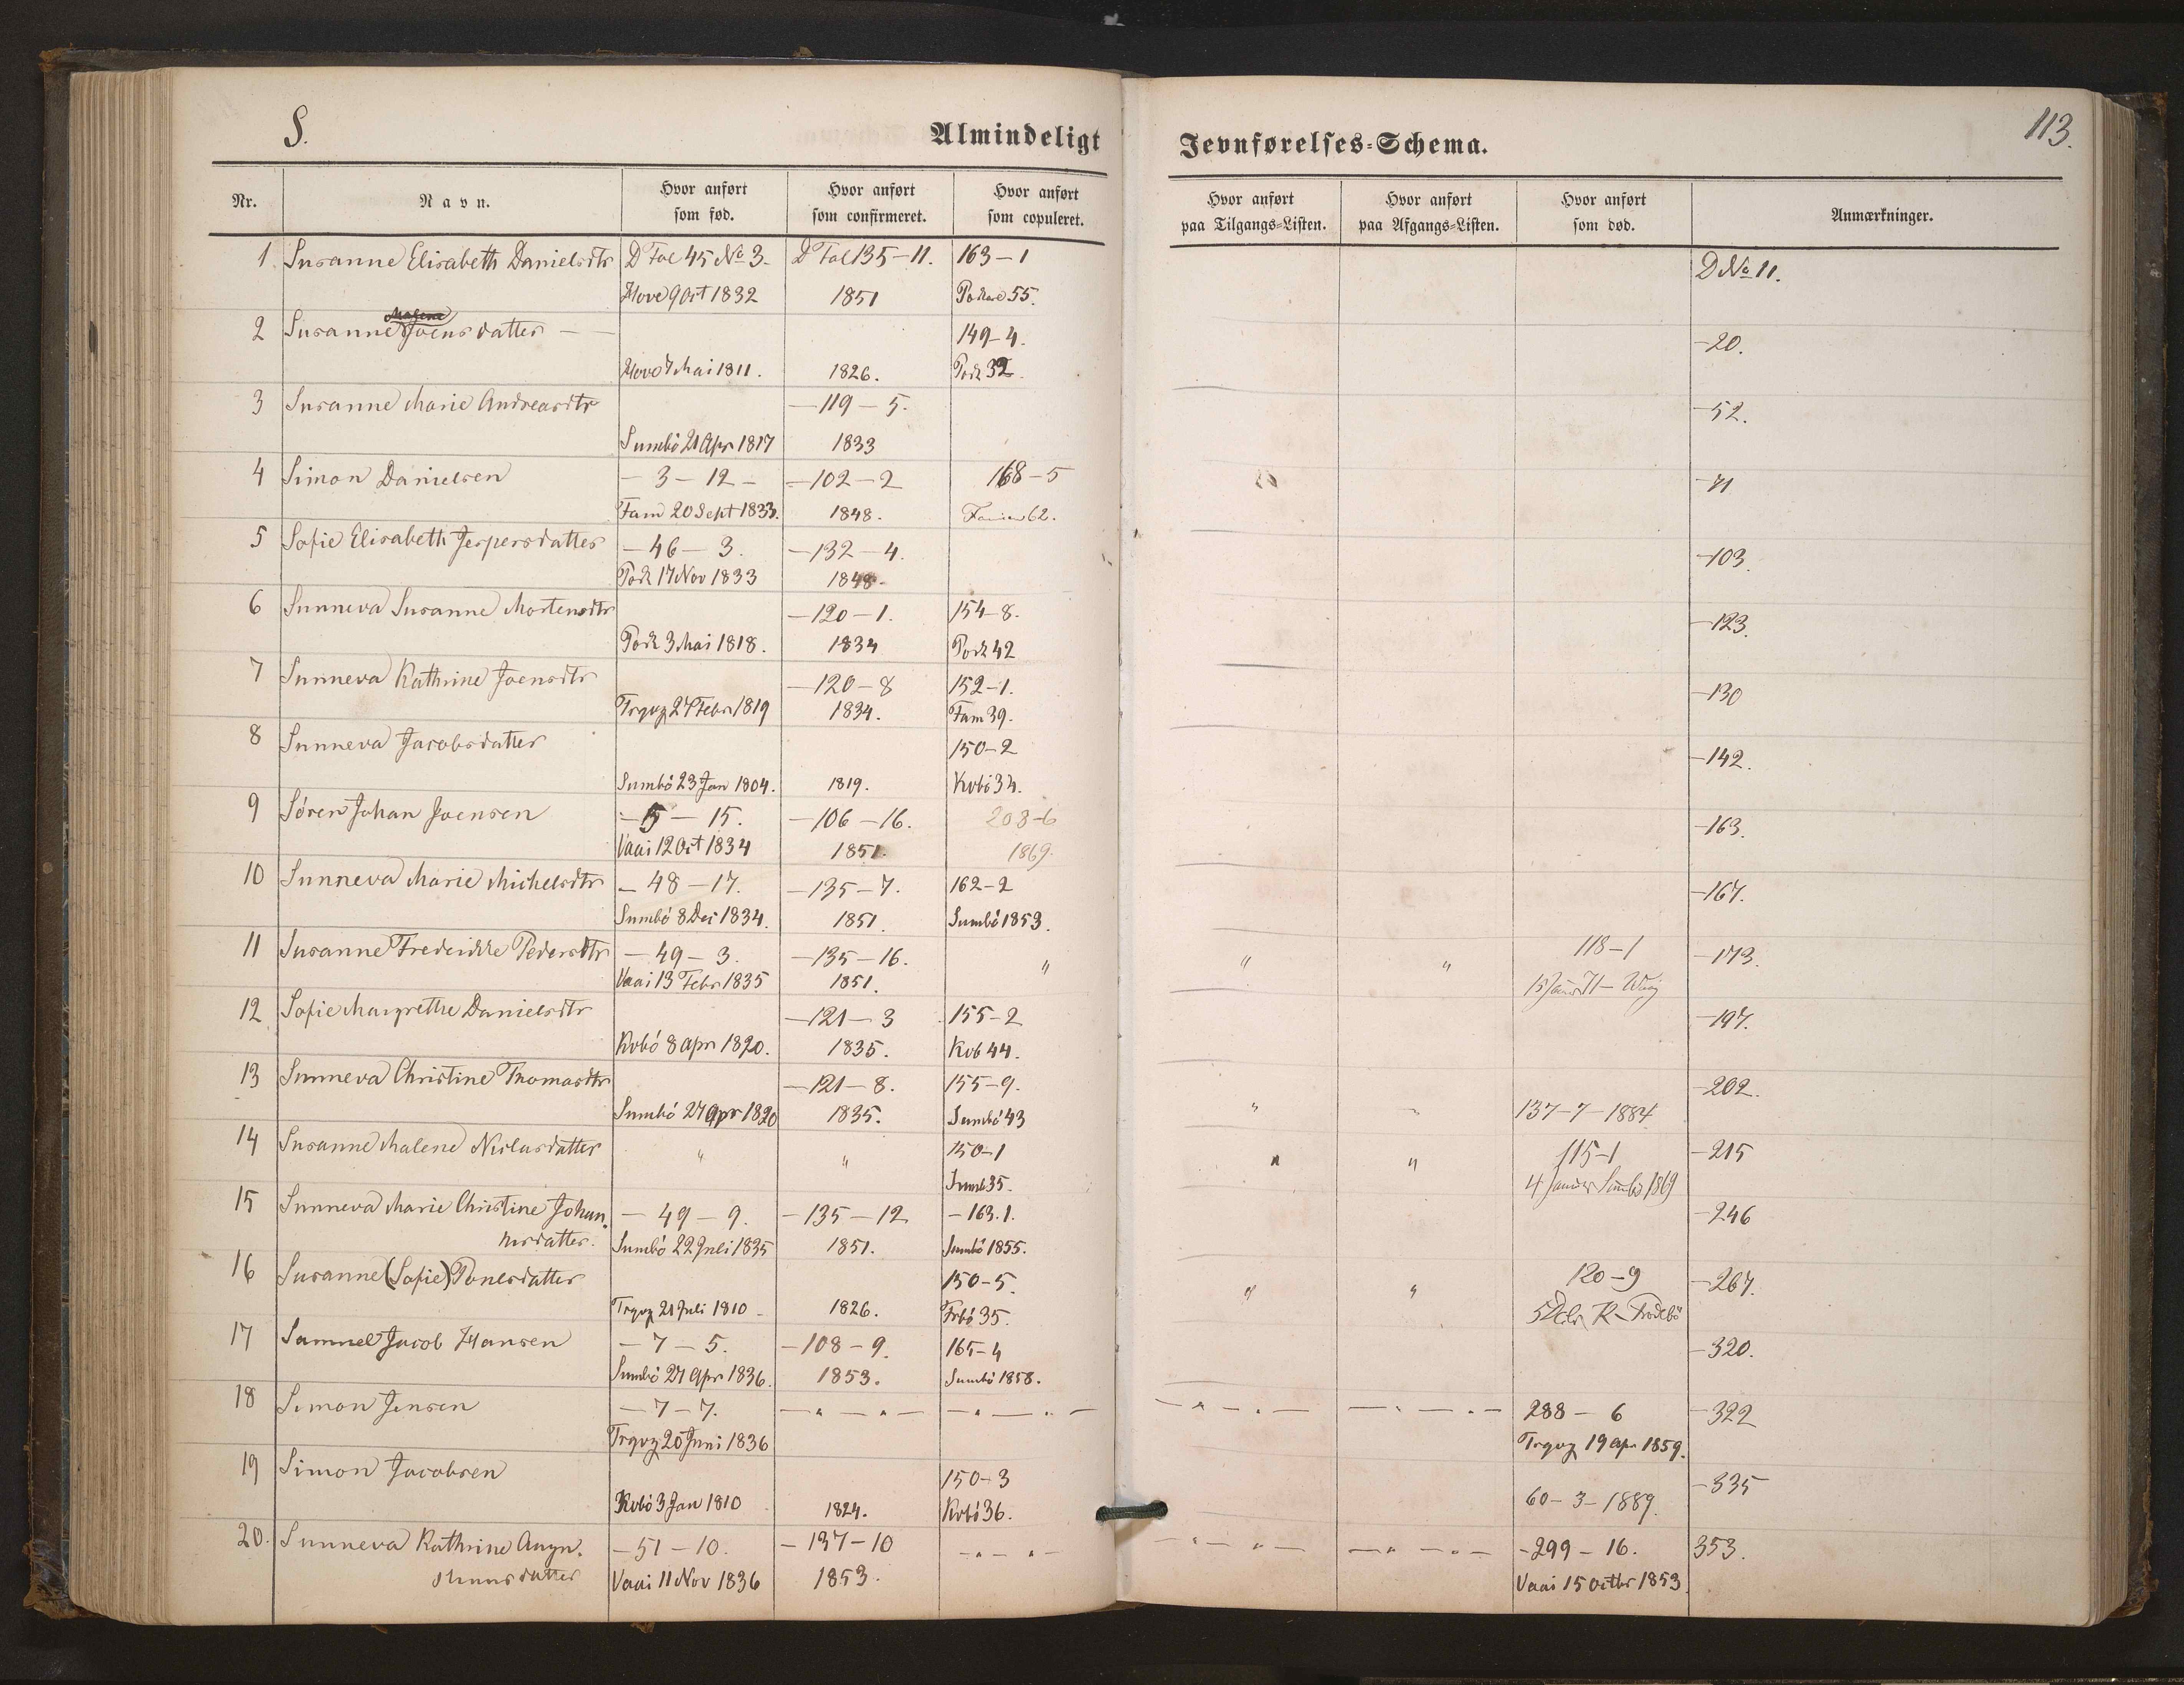 S.
Almindeligt Jevnførelses-Schema.
113.
Nr. Navn. Hvor anført som fød. Hvor anført som confirmeret. Hvor anført som copuleret. Hvor anført paa Tilgangs-Listen. Hvor anført paa Afgangs-Listen. Hvor anført som død. Anmærkninger.
1 Susanne Elisabeth Danielsdtr D Fol 45 No 3. D Fol 135-11. 163-1 D No 11.
Hove 9 Oct 1832 1851 55.
2 Susanne Joensdatter 149-4. -20.
Hove 7 Mai 1811. 1826. Pork 32
3 Susanne Marie Andreasdtr -119-5. -52.
Sumbö 21 Apr 1817 1833
4 Simon Danielsen -3-12- -102-2 168-5 -71
Fam 20 Sept 1833. 1848. 62.
5 Sofie Elisabeth Jespersdatter -46-3. -132-4. -103.
Pork 17 Nov 1833 1848.
6 Sunneva Susanne Mortensdtr -120-1. 154-8. -123.
Pork 3 Mai 1818. 1834 Pork 42
7 Sunneva Kathrine Joensdtr -120-8 152-1. -130
Trgvg 27 Febr 1819 1834. Fam 39.
8 Sunneva Jacobsdatter 150-2 -142.
Sumbö 23 Jan 1804. 1819. Kvbö 34.
9 Sören Johan Joensen -5-15. -106-16. 208-6 -163.
Vaai 12 Oct 1834 1851. 1869.
10 Sunneva Marie Michelsdtr -48-17. -135-7. 162-2 -167.
Sumbö 8 Dec 1834. 1851. Sumbö 1853.
11 Susanne Frederikke Pedersdtr -49-3. -135-16. " " " 118-1 -173.
Vaai 13 Febr 1835 1851.
12 Sofie Margrethe Danielsdtr -121-3 155-2 -197.
Kvbö 8 Apr 1820. 1835. Kvb 44.
13 Sunneva Christine Thomasdtr -121-8. 155-9. -202.
Sumbö 27 Apr 1820 1835. Sumbö 43 " " 137-7-1884
14 Susanne Malene Niclasdatter " " 150-1 " " 115-1 -215
Sumb 35. 4 Januar Sumbö 1869
15 Sunneva Marie Christine Johan- -49-9. -135-12 -163.1. -246
nesdatter. Sumbö 22 Juli 1835 1851. Sumbö 1855.
16 Susanne (Sofie) Poulsdatter 150-5. " " 120-9 -267.
Trgvg 21 Juli 1810 1826. Frbö 35.
17 Samuel Jacob Hansen -7-5. -108-9. 165-4 -320.
Sumbö 27 Apr 1836. 1853. Sumbö 1858.
18 Simon Jensen -7-7. -"-"- -"-"- -"-"- -"-"- 288-6 -322
Trgvg 20 Juni 1836 Trgvg 19 Apr 1859.
19 Simon Jacobsen 150-3 -335
Kvbö 3 Jan 1810 1824. Kvbö 36. 60-3-1889.
20. Sunneva Kathrine -51-10. -137-10 -"-"- -"-"- -"-"- -299-16. 353.
Vaai 11 Nov 1836 1853. Vaai 15 Octbr 1853.